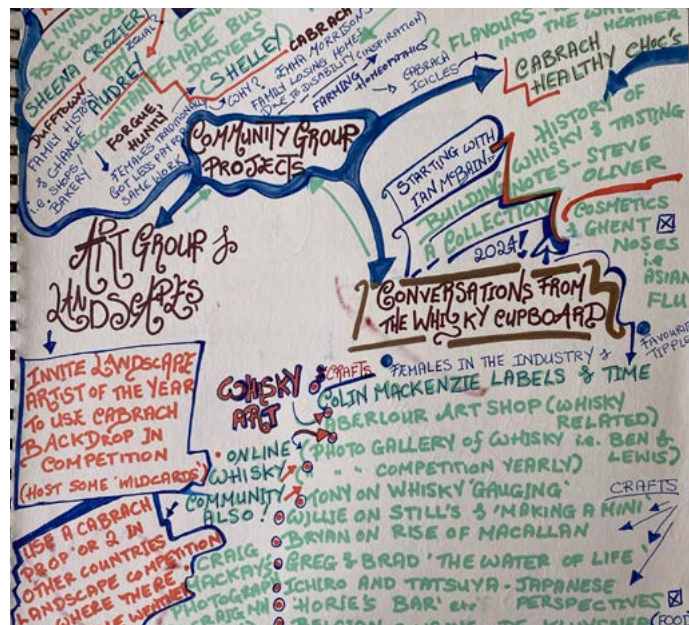 LIVING
PSYCHOLOGY
SHEENA CROZIER
DUFFTOWN
FAMILY HISTORY
& CHANGE
i.e SHOPS/
BAKERY
PAY
EQUAL?
AUDREY
ACCOUNTANT
FEMALE BUS
DRIVERS
(SHELLEY
FORGUE,
HUNTLY
FEMALES TRADITIONALLY
GOT LESS PAY FOR
SAME WORK
WHY?
CABRACH
JEMMA MORRISON
FAMILY LOSING HOMES
DUE TO DISABILITY (INSPIRATION)
FARMING
HOMEOPATHICS
CABRACH
ICICLES
? FLAVOURS -
INTO THE
HEATHER
CABRACH
HEALTHY CHOC'S
COMMUNITY GROUP
PROJECTS
STARTING WITH
IAN McBAIN..
BUILDING
A COLLECTION
2024!
HISTORY OF
WHISKY & TASTING
NOTES - STEVE
OLIVER
COSMETICS
& GHENT
NOSES
i.e
ASIAN
FLU
ART GROUP &
LANDSCAPES
CONVERSATIONS FROM
THE WHISKY CUPBOARD
FAVOURITE
TIPPLE
INVITE LANDSCAPE
ARTIST OF THE YEAR
TO USE CABRACH
BACKDROP IN
COMPETITION
(HOST SOME 'WILDCARDS')
WHISKY
ART
CRAFTS
FEMALES IN THE INDUSTRY &
COLIN MACKENZIE LABELS & TIME
ABERLOUR ART SHOP (WHISKY
RELATED)
(PHOTO GALLERY OF WHISKY i.e. BEN &
LEWIS)
( " " COMPETITION YEARLY)
• ONLINE
WHISKY
COMMUNITY
ALSO!
TONY ON WHISKY 'GAUGING'
WILLIE ON STILL'S & 'MAKING A MINI'
BRYAN ON RISE OF MACALLAN
GREG & BRAD 'THE WATER OF LIFE'
ICHIRO AND TATSUYA - JAPANESE
'HORIE'S BAR' etc PERSPECTIVES
CRAFTS
USE A CABRACH
'PROP' OR 2 IN
OTHER COUNTRIES
LANDSCAPE COMPETITION
WHERE THERE
WEATHER
CRAIG
MACKAY'S
PHOTOGRAPH
BELGIAN
(FOOD